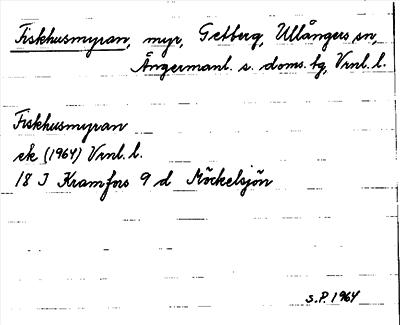 Fiskhusmyran, myr, Getberg, Ullångers sn,
Ångermanl. s. doms. tg, Vrnl. l.
Fiskhusmyran
ek (1964) Vrnl. l.
18 I Kramfors 9 d Möckelsjön
S.P. 1964